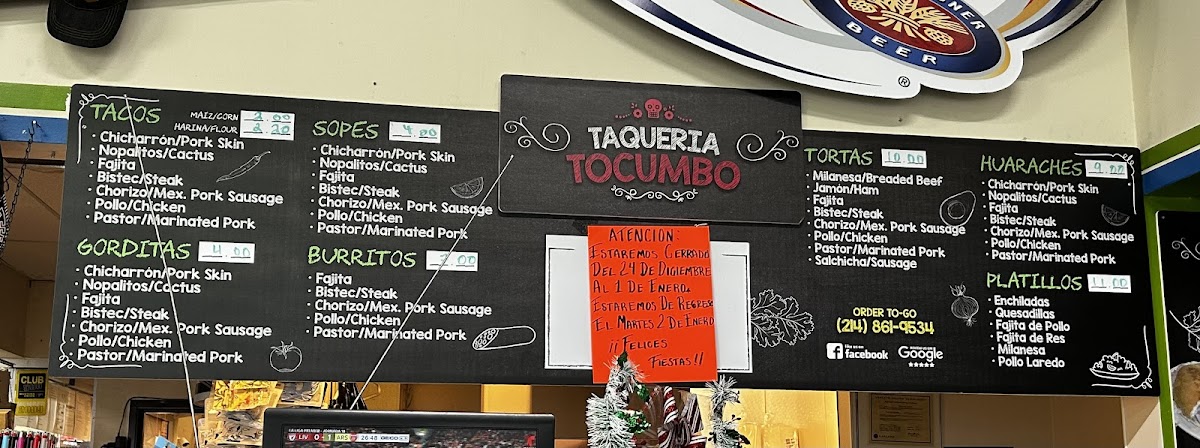 BEER
®
TACOS
MAIZ/CORN 2.00
HARINA/FLOUR 2.20
• Chicharrón/Pork Skin
• Nopalitos/Cactus
• Fajita
• Bistec/Steak
• Chorizo/Mex. Pork Sausage
• Pollo/Chicken
• Pastor/Marinated Pork
GORDITAS 4.00
• Chicharrón/Pork Skin
• Nopalitos/Cactus
• Fajita
• Bistec/Steak
• Chorizo/Mex. Pork Sausage
• Pollo/Chicken
• Pastor/Marinated Pork
SOPES 4.00
• Chicharrón/Pork Skin
• Nopalitos/Cactus
• Fajita
• Bistec/Steak
• Chorizo/Mex. Pork Sausage
• Pollo/Chicken
• Pastor/Marinated Pork
BURRITOS
• Fajita
• Bistec/Steak
• Chorizo/Mex. Pork Sausage
• Pollo/Chicken
• Pastor/Marinated Pork
TAQUERIA
TOCUMBO
ATENCION:
ESTAREMOS CERRADO
DEL 24 DE DICIEMBRE
AL 1 DE ENERO.
ESTAREMOS DE REGRESO
EL MARTES 2 DE ENERO
¡¡FELICES
FIESTAS!!
TORTAS 10.00
• Milanesa/Breaded Beef
• Jamón/Ham
• Fajita
• Bistec/Steak
• Chorizo/Mex. Pork Sausage
• Pollo/Chicken
• Pastor/Marinated Pork
• Salchicha/Sausage
ORDER TO-GO
(214) 861-9534
facebook
Google
HUARACHES 9.00
• Chicharrón/Pork Skin
• Nopalitos/Cactus
• Fajita
• Bistec/Steak
• Chorizo/Mex. Pork Sausage
• Pollo/Chicken
• Pastor/Marinated Pork
PLATILLOS 11.00
• Enchiladas
• Quesadillas
• Fajita de Pollo
• Fajita de Res
• Milanesa
• Pollo Laredo
CLUB
LIV 0 1 ARS 26:48 GEICO